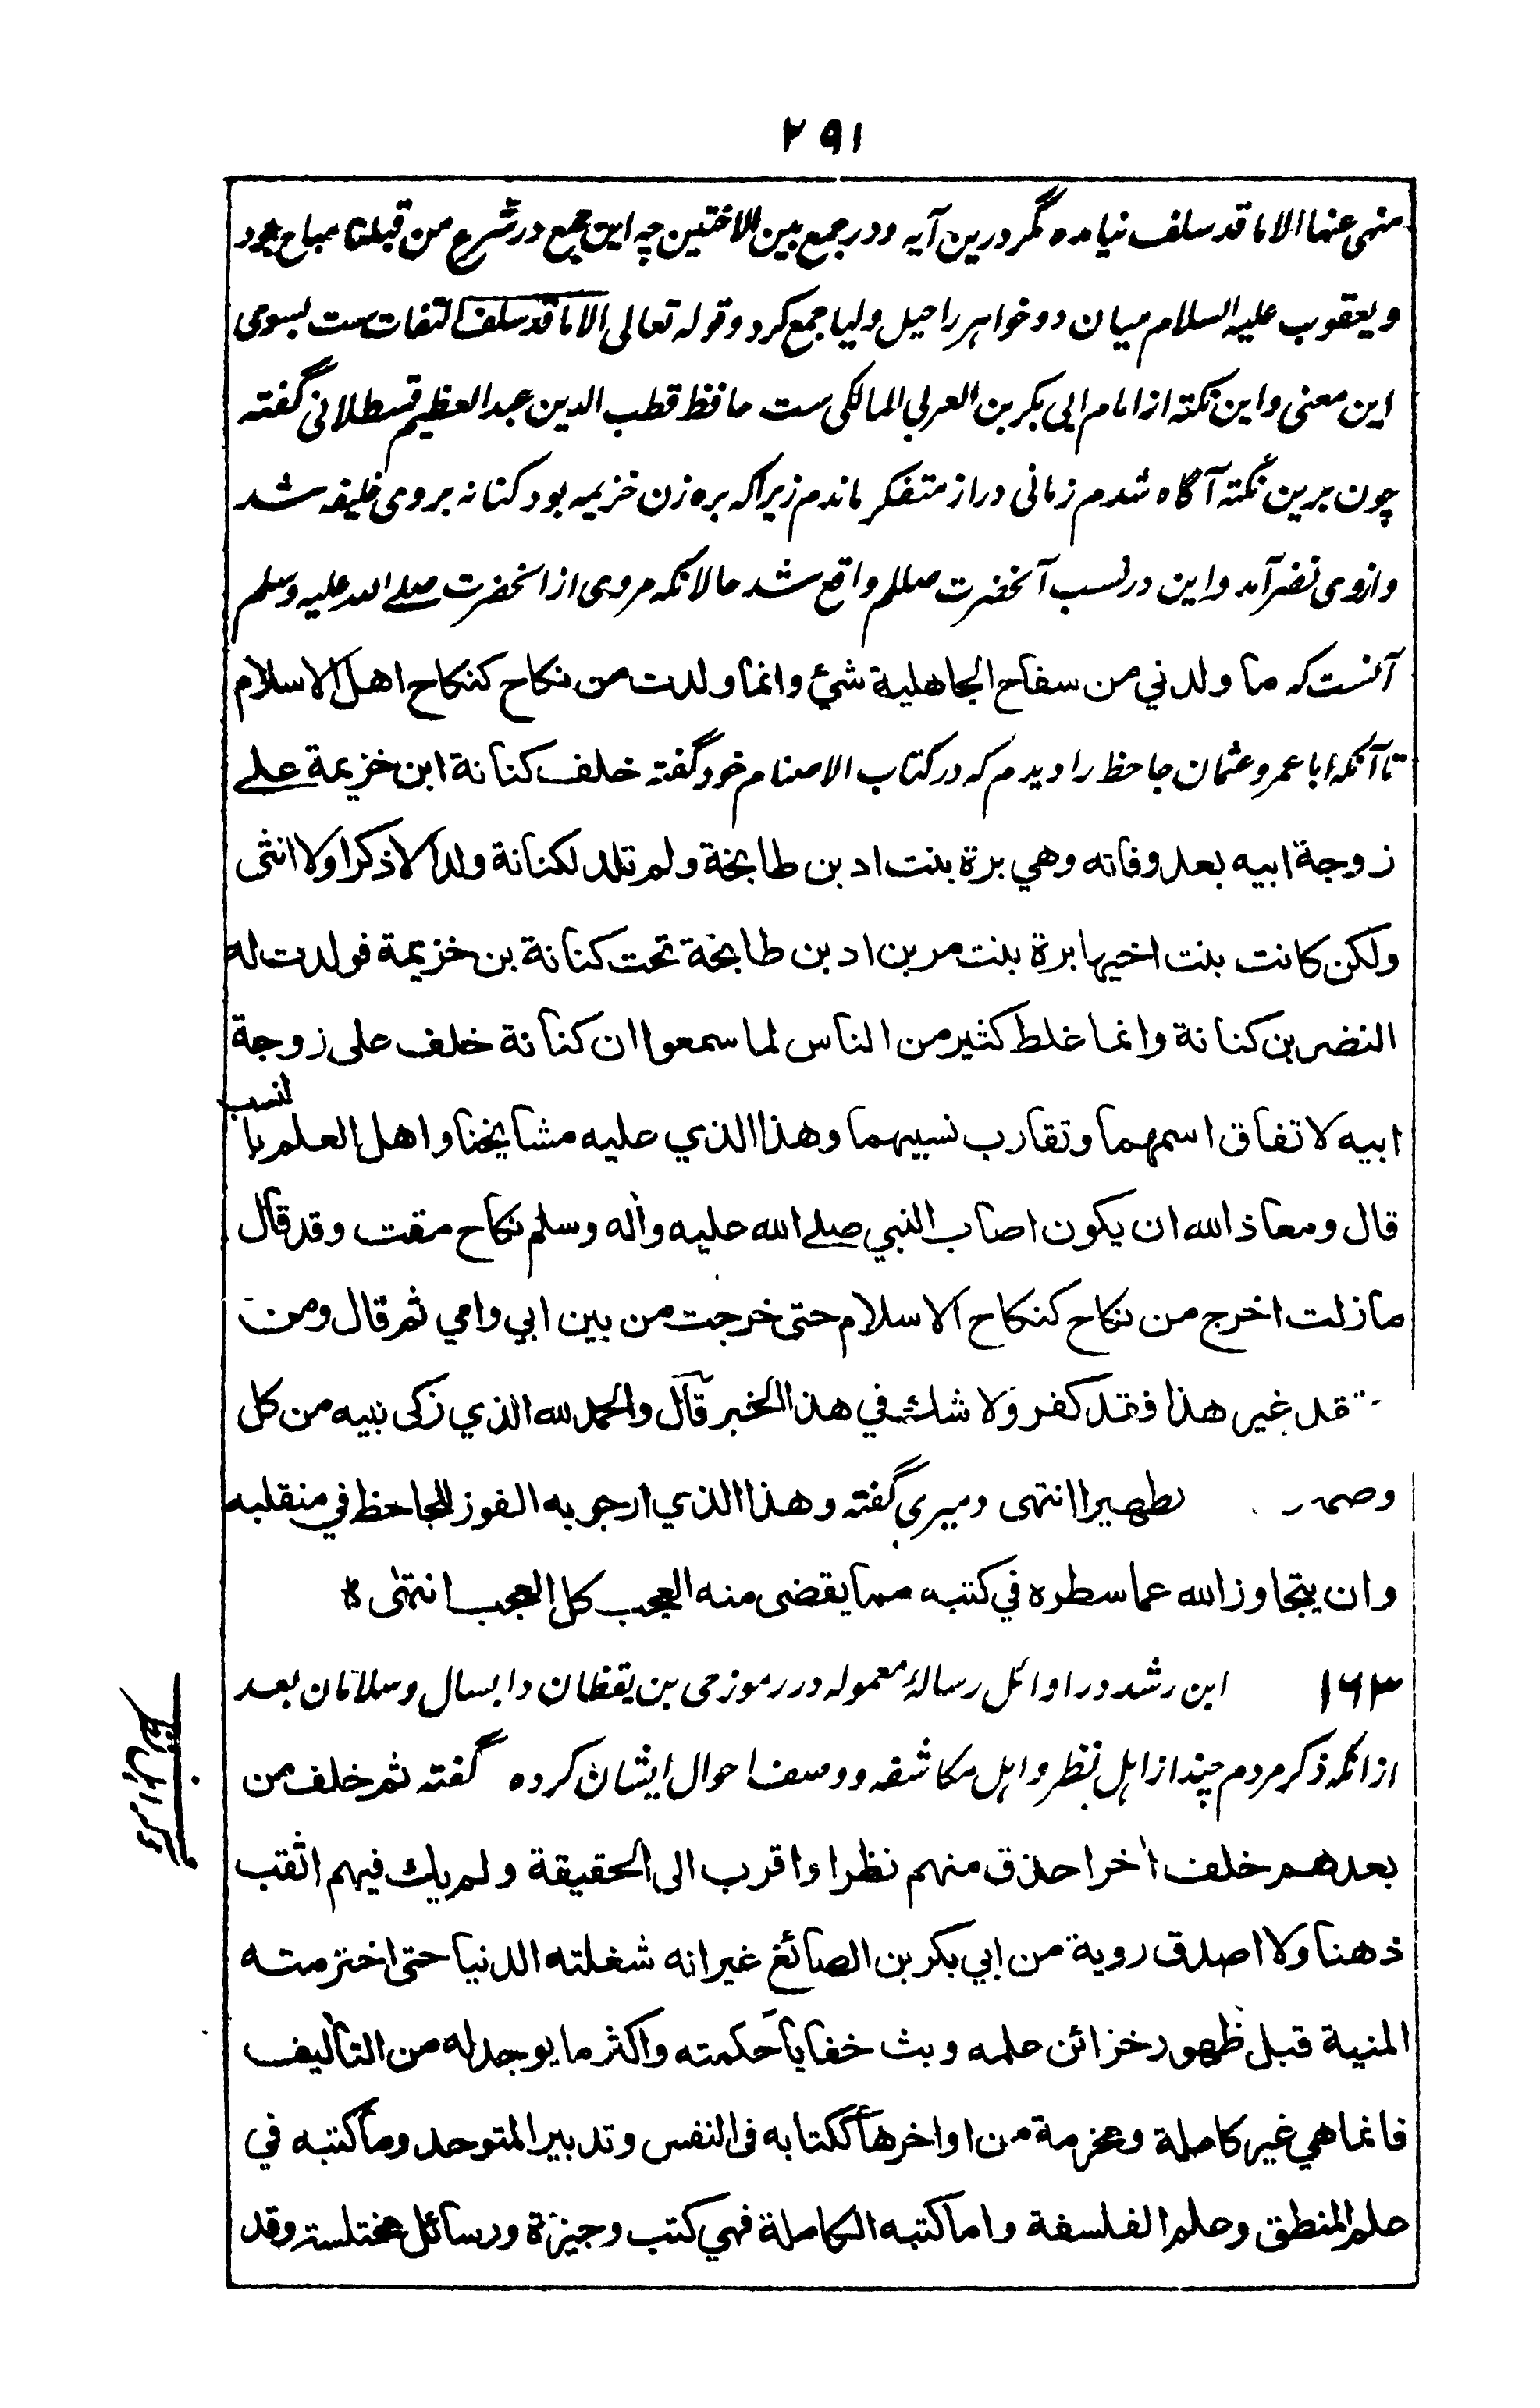 ۲۹۱
منهی عنها الا ما قد سلف نیامده مگر درین آیه و در جمع بین الاختین چه این جمع در شرع من قبلنا مباح بود
و یعقوب علیه السلام میان دو خواهر راحیل و لیا جمع کرد و قوله تعالی الا ما قد سلف التفات ست بسوی
این معنی و این نکته از امام ابی بکر بن العربی المالکی ست حافظ قطب الدین عبد العظیم قسطلانی گفته
چون برین نکته آگاه شدم زمانی دراز متفکر ماندم زیرا که بره زن خزیمه بود کنانه بر وی خلیفه شد
و ازوی نضر آمد و این در نسب آنحضرت صللم واقع شد حالانکه مروی از انحضرت صلے الله علیه وسلم
آنست که ما ولدني من سفاح الجاهلية شئ وانما ولدت من نكاح كنكاح اهل الاسلام
تا آنکه ابا عمرو عثمان جاحظ را دیدم که در کتاب الاصنام خود گفته خلف كنانة ابن خزيمة علے
زوجة ابيه بعد وفاته وهي برة بنت اد بن طابخة ولم تلد لكنانة ولدا لا ذكرا ولا انثى
ولكن كانت بنت اخيها برة بنت مر بن اد بن طابخة تحت كنانة بن خزيمة فولدت له
النضر بن كنانة وانما غلط كثير من الناس لما سمعوا ان كنانة خلف على زوجة
ابيه لاتفاق اسمهما وتقارب نسبهما وهذا الذي عليه مشايخنا واهل العلم بالنسب
قال ومعاذ الله ان يكون اصاب النبي صلے الله عليه واله وسلم نكاح مقت وقد قال
ما زلت اخرج من نكاح كنكاح الاسلام حتى خرجت من بين ابي وامي ثم قال ومن
تقد غير هذا فقد كفر ولا شك في هذا الخبر قال والحمد لله الذي زكى نبيه من كل
وصم تطهيرا انتهى دمیری گفته وهذا الذي ارجو به الفوز للجاحظ في منقلبه
وان يتجاوز الله عما سطره في كتبه مما يقضى منه العجب كل العجب انتهى ٥
۱۶۳ ابن رشد در اوائل رسالهٔ معموله در رموز حی بن یقظان و ابسال و سلامان بعد
از انکه ذکر مردم چند از اهل نظر و اهل مکاشفه و وصف احوال ایشان کرده گفته ثم خلف من
بعدهم خلف اخر احذق منهم نظرا واقرب الى الحقيقة ولم يك فيهم اثقب
ذهنا ولا اصدق روية من ابي بكر بن الصائغ غير انه شغلته الدنيا حتى اخترمته
المنية قبل ظهور خزائن علمه وبث خفايا حكمته واكثر ما يوجد له من التأليف
فانما هي غير كاملة ومخرمة من اواخرها ككتابه في النفس وتدبير المتوحد وما كتبه في
علم المنطق وعلم الفلسفة واما كتبه الكاملة فهي كتب وجيزة ورسائل مختلسة وقد